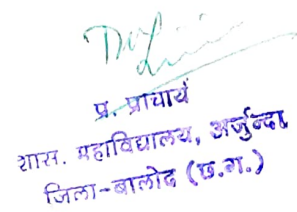 प्र. प्राचार्य
शास. महाविद्यालय, अर्जुन्दा,
जिला-बालोद (छ.ग.)